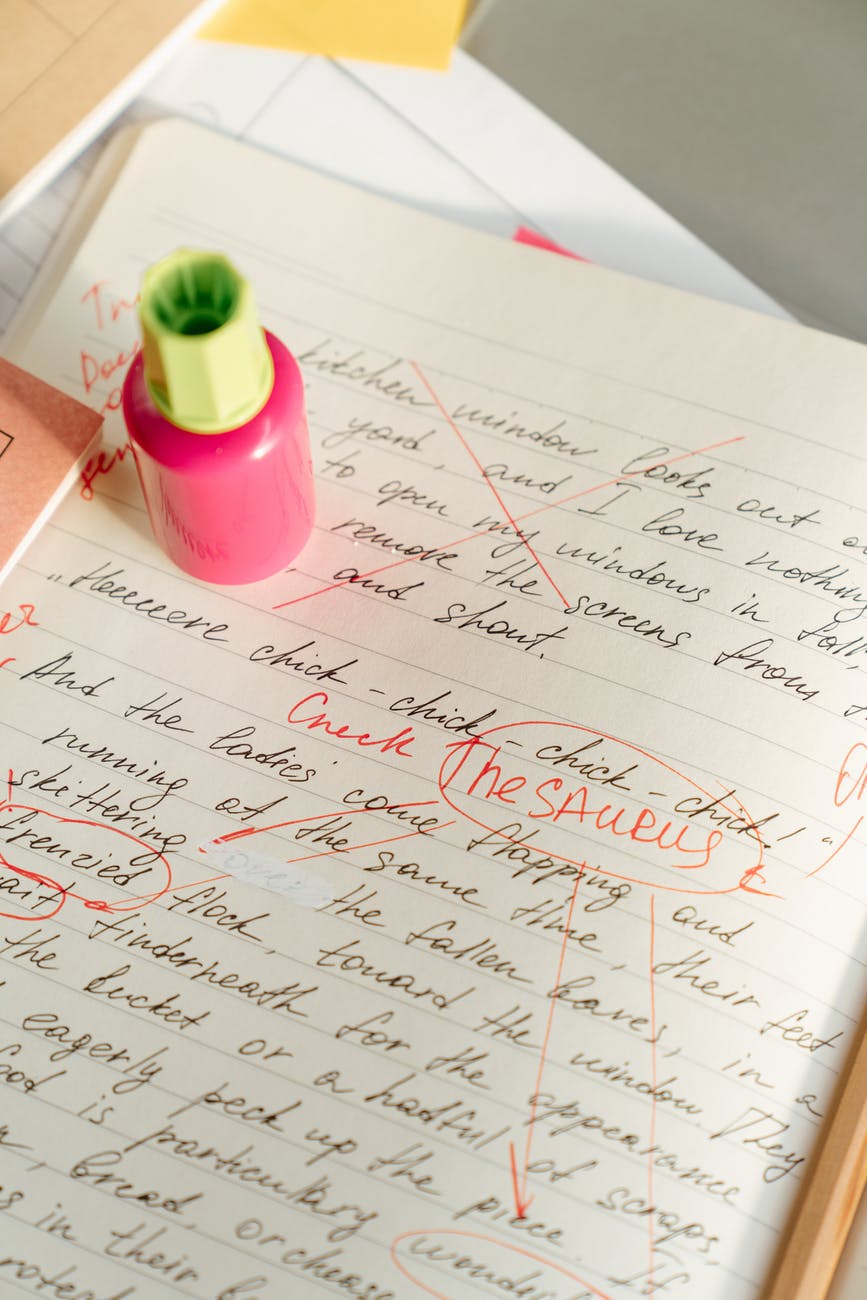 kitchen window looks out
yard, and I love nothing
to open my windows in fall,
remove the screens from
and shout.
„Heeeeere chick-chick-chick-chick!"
Check THeSAURUS
And the ladies come flapping and
running at the same time, their feet
skittering over the fallen leaves, in a
frenzied flock, toward the window. They
wait underneath for the appearance
the bucket or a hatful of scraps,
eagerly peck up the piece. If
is particularly
bread, or cheese
in their